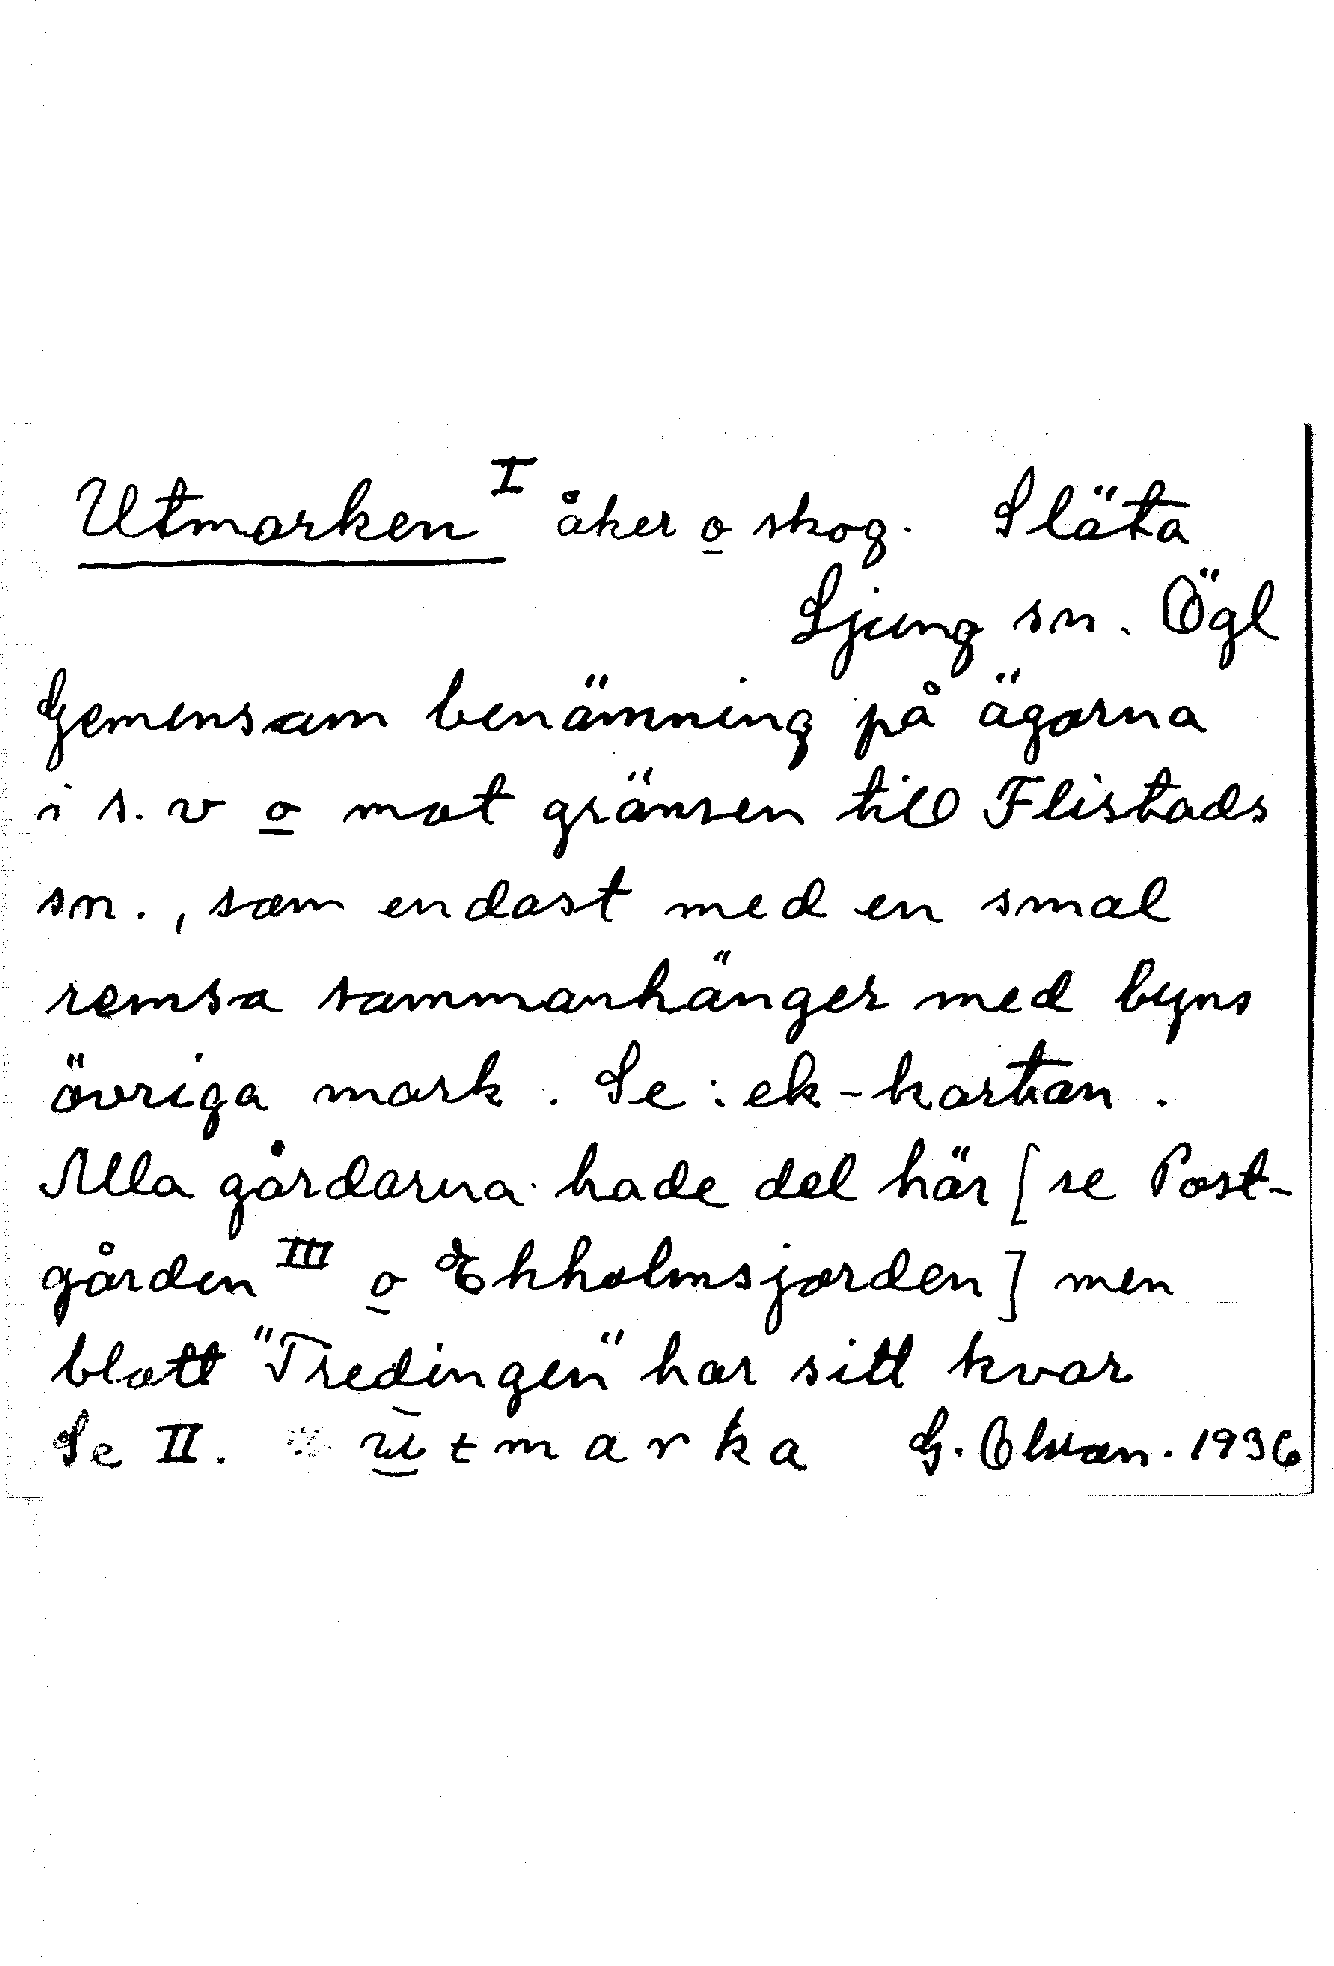 Utmarken I åker o skog. Släta
Ljung sn. Ögl
Gemensam benämning på ägorna
i s. v o mot gränsen till Flistads
sn., som endast med en smal
remsa sammanhänger med byns
övriga mark. Se: ek-kartan.
Alla gårdarna hade del här [se Post-
gården III o Ekholmsjorden] men
blott "Tredingen" har sitt kvar
Se II. utmarka G. Olsson. 1936